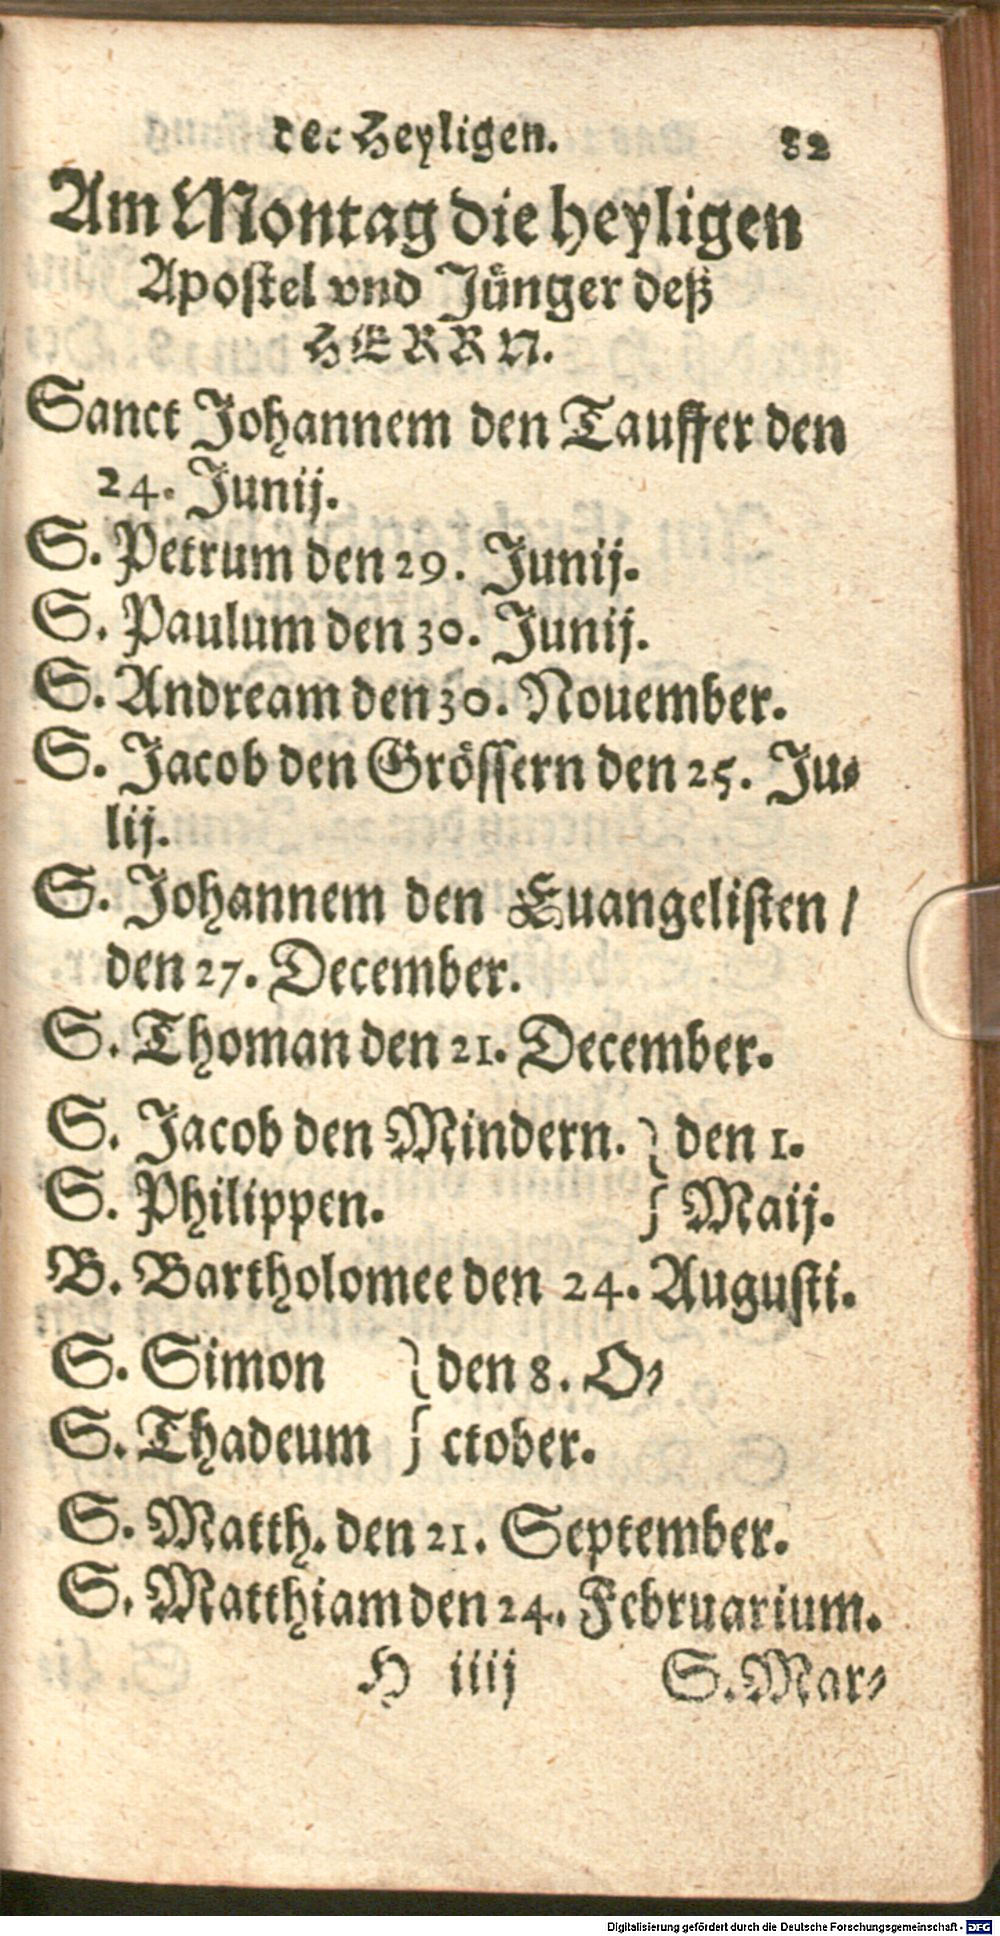 der Heyligen. 82
Am Montag die heyligen
Apostel vnd Jünger deß
HERRN.
Sanct Johannem den Tauffer den
24. Junij.
S. Petrum den 29. Junij.
S. Paulum den 30. Junij.
S. Andream den 30. Nouember.
S. Jacob den Grössern den 25. Ju-
lij.
S. Johannem den Euangelisten /
den 27. December.
S. Thoman den 21. December.
S. Jacob den Mindern. } den 1.
S. Philippen. } Maij.
B. Bartholomee den 24. Augusti.
S. Simon } den 8. O-
S. Thadeum } ctober.
S. Matth. den 21. September.
S. Matthiam den 24. Februarium.
H iiij S. Mar-
Digitalisierung gefördert durch die Deutsche Forschungsgemeinschaft - DFG